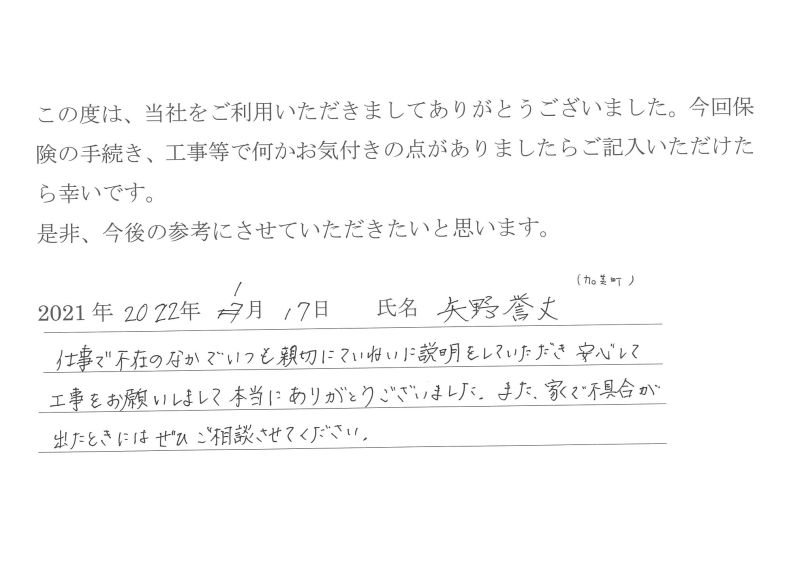 この度は、当社をご利用いただきましてありがとうございました。今回保
険の手続き、工事等で何かお気付きの点がありましたらご記入いただけた
ら幸いです。
是非、今後の参考にさせていただきたいと思います。
(加美町)
2021 年 2022年 1月 17日 氏名 矢野誉丈
仕事で不在のなかでいつも親切にていねいに説明をしていただき 安心して
工事をお願いしまして 本当にありがとうございました。また、家で不具合が
出たときにはぜひご相談させてください。